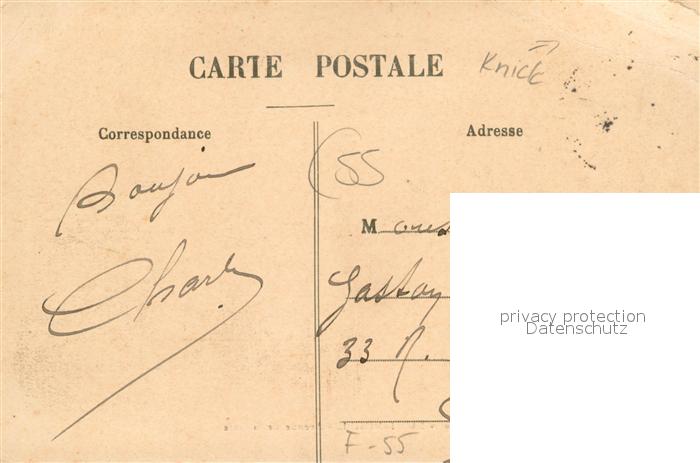 CARTE POSTALE
Knick
Correspondance
Adresse
55
Bonjour
M
Charles
Gaston
33 R.
F-55
privacy protection
Datenschutz